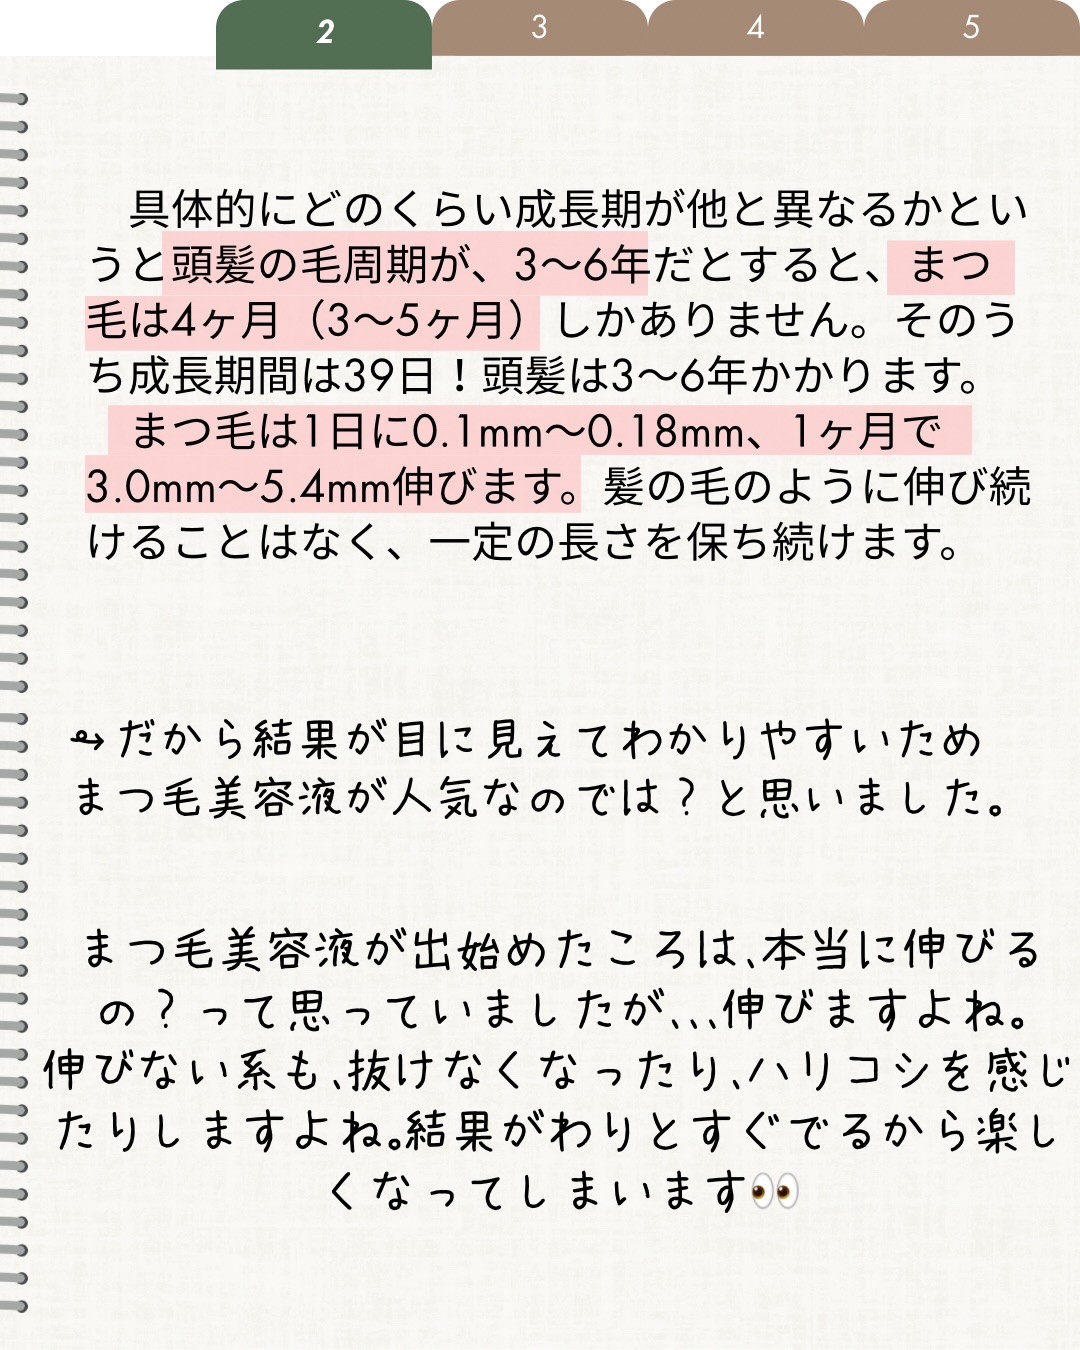 2
3
4
5
具体的にどのくらい成長期が他と異なるかとい
うと頭髪の毛周期が、3〜6年だとすると、まつ
毛は4ヶ月（3〜5ヶ月）しかありません。そのう
ち成長期間は39日！頭髪は3〜6年かかります。
まつ毛は1日に0.1mm〜0.18mm、1ヶ月で
3.0mm〜5.4mm伸びます。髪の毛のように伸び続
けることはなく、一定の長さを保ち続けます。
↬だから結果が目に見えてわかりやすいため
まつ毛美容液が人気なのでは？と思いました。
まつ毛美容液が出始めたころは、本当に伸びる
の？って思っていましたが、、、伸びますよね。
伸びない系も、抜けなくなったり、ハリコシを感じ
たりしますよね。結果がわりとすぐでるから楽し
くなってしまいます👀